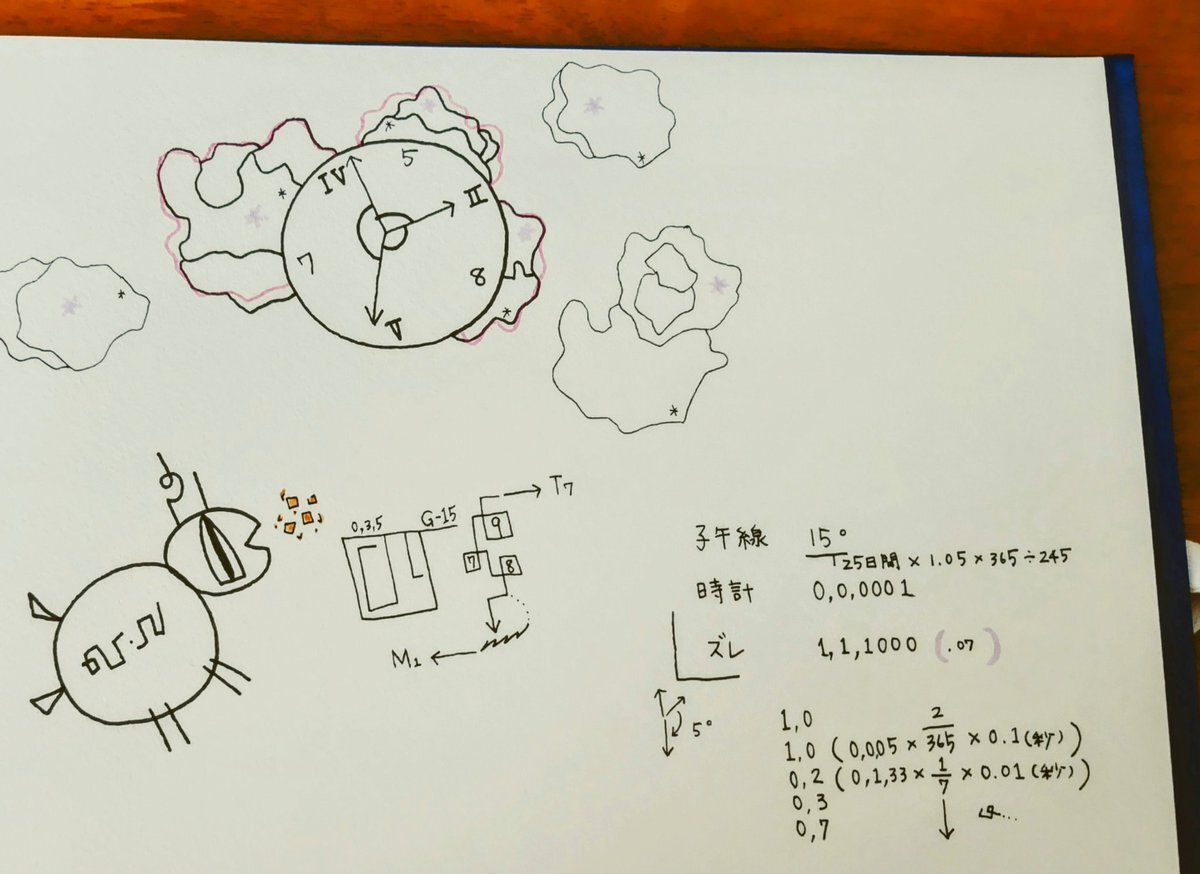 5
IV
II
7
8
V
T7
0,3,5
G-15
9
7
8
M1
子午線 15°
25日間 × 1.05 × 365 ÷ 245
時計 0,0,0001
ズレ 1,1,1000 (.07)
5°
1,0
1,0 (0,005 × 2/365 × 0.1(秒))
0,2 (0,1,33 × 1/7 × 0.01(秒))
0,3
0,7